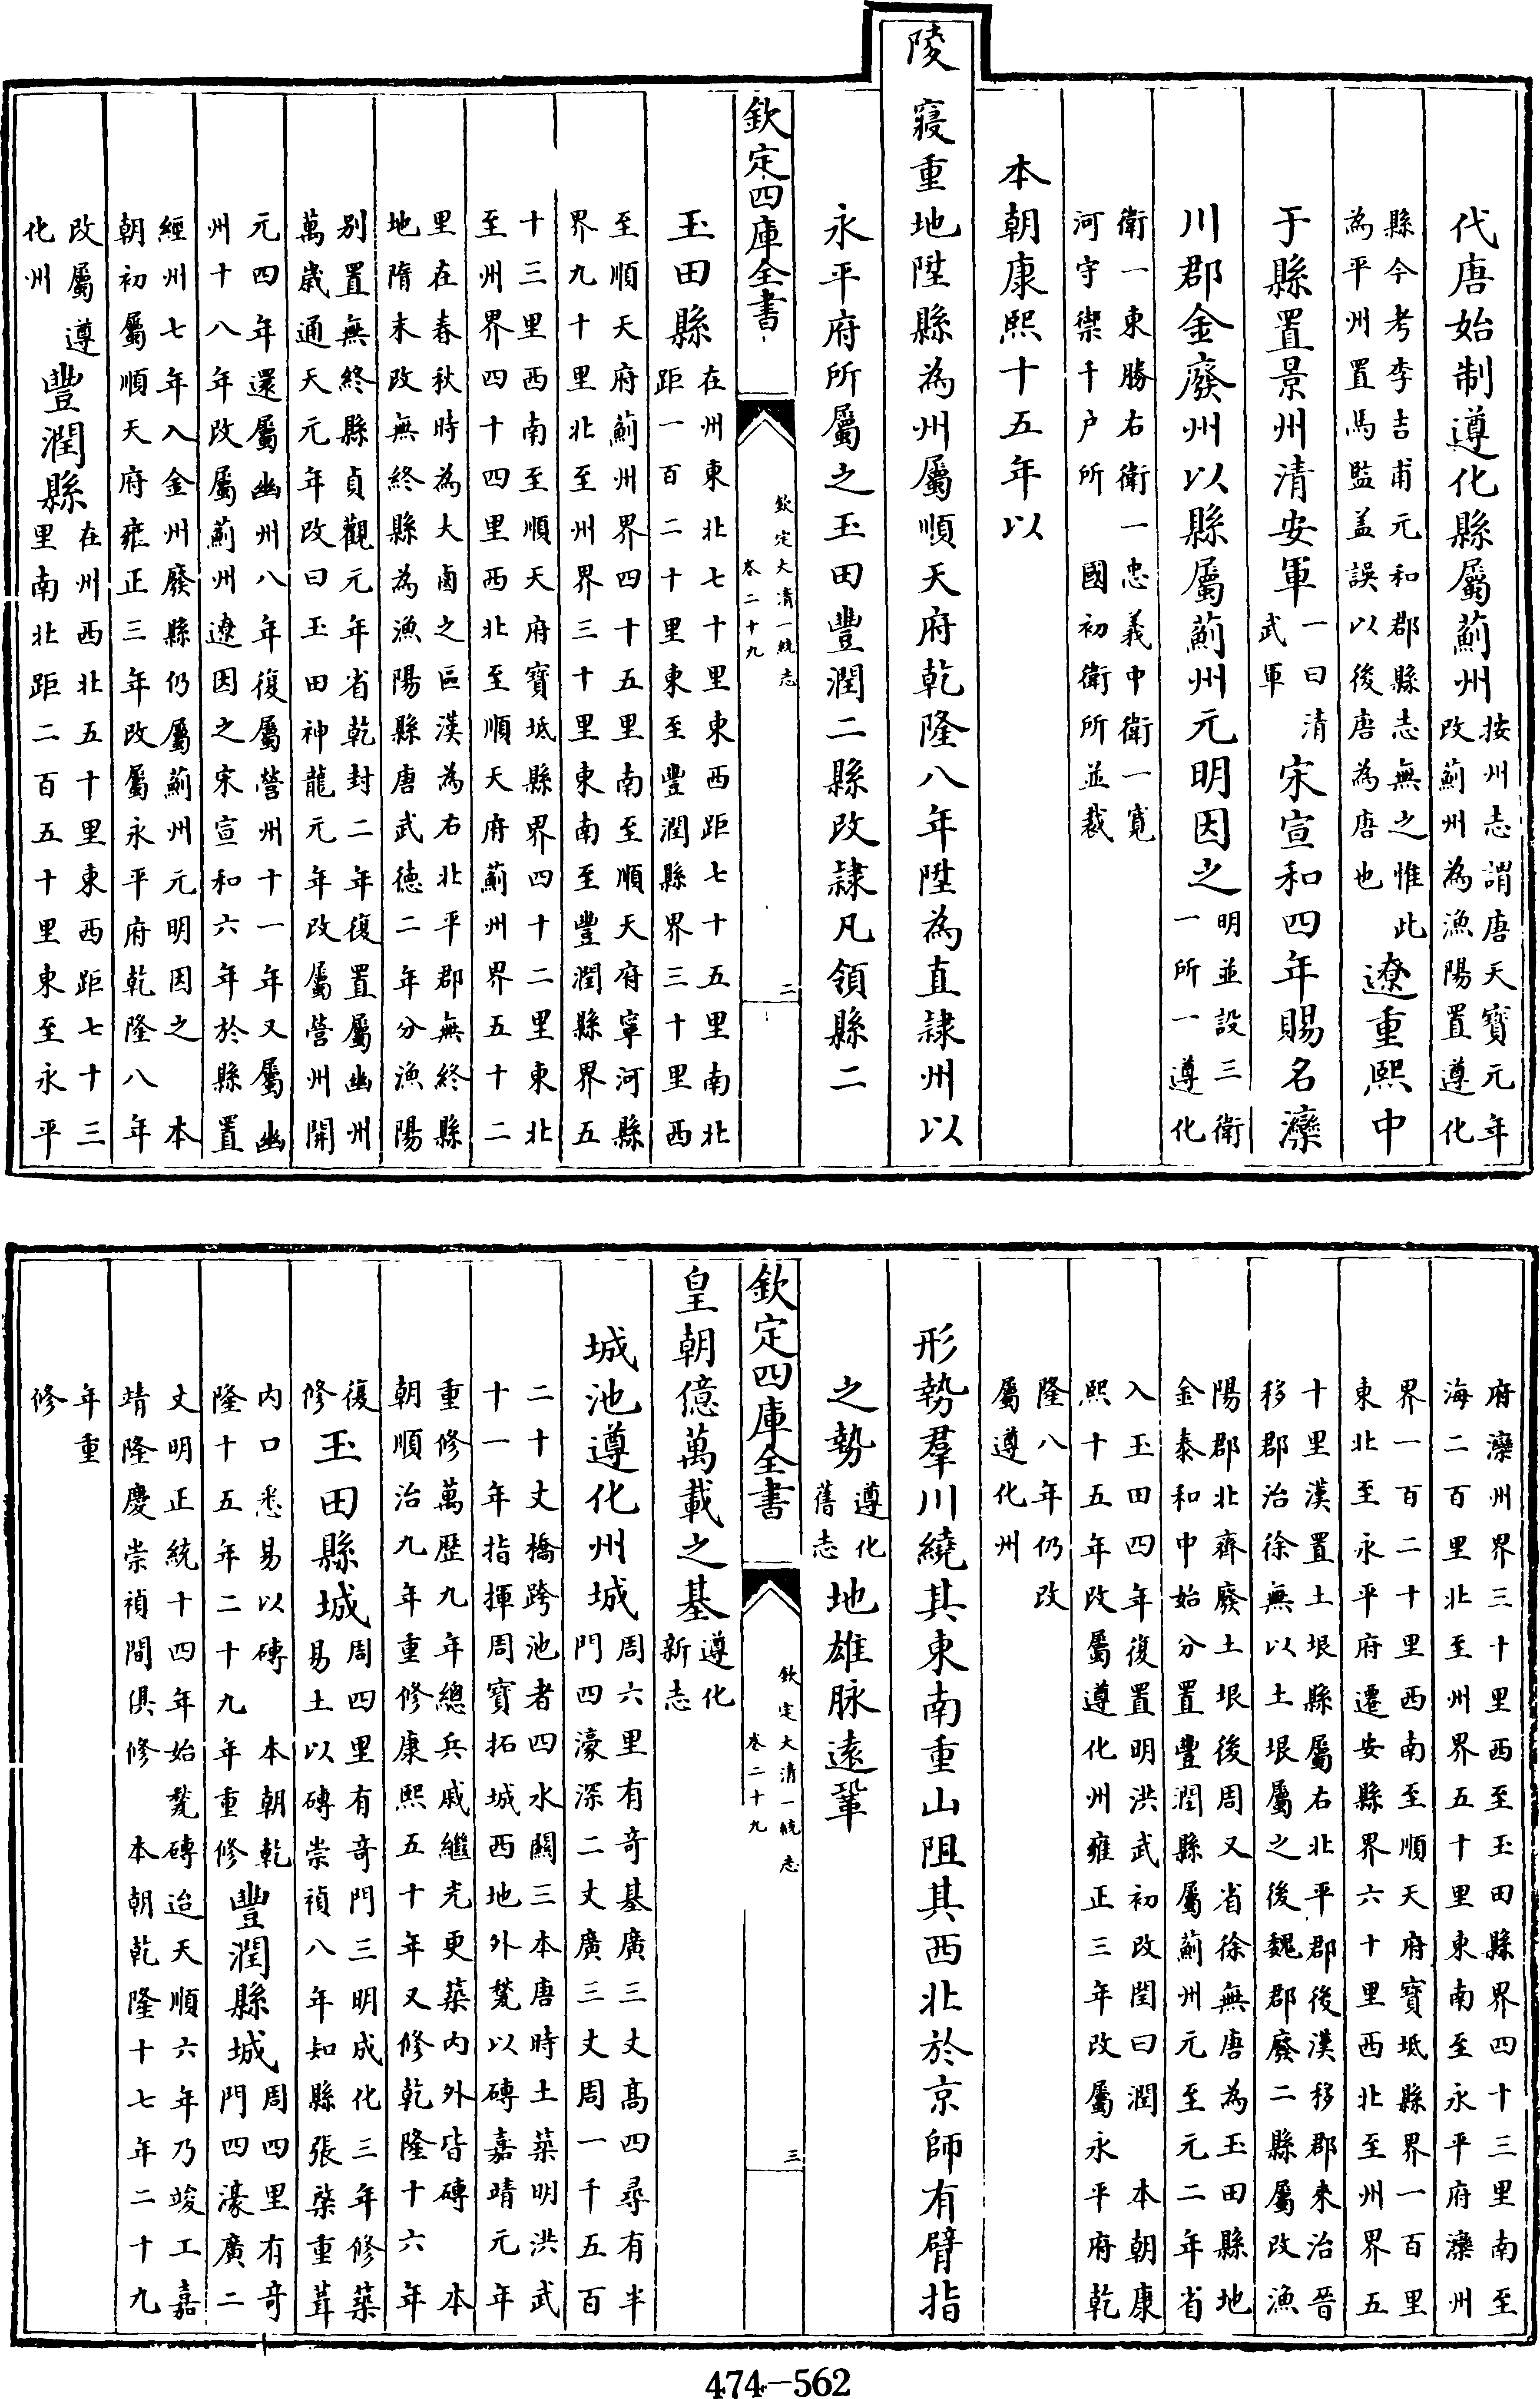 代唐始制遵化縣屬薊州按州志謂唐天寶元年改薊州為漁陽置遵化
縣今考李吉甫元和郡縣志無之惟此為平州置馬監盖誤以後唐為唐也遼重熙中
于縣置景州清安軍一曰清武軍宋宣和四年賜名灤
川郡金廢州以縣屬薊州元明因之明並設三衛一所一遵化
衛一東勝右衛一忠義中衛一寛河守禦千户所國初衛所並裁
本朝康熙十五年以
陵寢重地陞縣為州屬順天府乾隆八年陞為直隷州以
永平府所屬之玉田豐潤二縣改隷凡領縣二
欽定四庫全書
欽定大清一統志
卷二十九
二
玉田縣在州東北七十里東西距七十五里南北距一百二十里東至豐潤縣界三十里西
至順天府薊州界四十五里南至順天府寧河縣界九十里北至州界三十里東南至豐潤縣界五
十三里西南至順天府寶坻縣界四十二里東北至州界四十四里西北至順天府薊州界五十二
里在春秋時為大鹵之區漢為右北平郡無終縣地隋末改無終縣為漁陽縣唐武德二年分漁陽
別置無終縣貞觀元年省乾封二年復置屬幽州萬歲通天元年改曰玉田神龍元年改屬營州開
元四年還屬幽州八年復屬營州十一年又屬幽州十八年改屬薊州遼因之宋宣和六年於縣置
經州七年入金州廢縣仍屬薊州元明因之本朝初屬順天府雍正三年改屬永平府乾隆八年
改屬遵化州豐潤縣在州西北五十里東西距七十三里南北距二百五十里東至永平
府灤州界三十里西至玉田縣界四十三里南至海二百里北至州界五十里東南至永平府灤州
界一百二十里西南至順天府寳坻縣界一百里東北至永平府遷安縣界六十里西北至州界五
十里漢置土垠縣屬右北平郡後漢移郡來治晉移郡治徐無以土垠屬之後魏郡廢二縣屬改漁
陽郡北齊廢土垠後周又省徐無唐為玉田縣地金泰和中始分置豐潤縣屬薊州元至元二年省
入玉田四年復置明洪武初改閏曰潤本朝康熙十五年改屬遵化州雍正三年改屬永平府乾
隆八年仍改屬遵化州
形勢羣川繞其東南重山阻其西北於京師有臂指
之勢遵化舊志地雄脉遠鞏
欽定四庫全書
欽定大清一統志
卷二十九
三
皇朝億萬載之基遵化新志
城池遵化州城周六里有竒基廣三丈髙四尋有半門四濠深二丈廣三丈周一千五百
二十丈橋跨池者四水闗三本唐時土築明洪武十一年指揮周寶拓城西地外甃以磚嘉靖元年
重修萬歷九年總兵戚繼光更築内外皆磚本朝順治九年重修康熙五十年又修乾隆十六年
復修玉田縣城周四里有竒門三明成化三年修築易土以磚崇禎八年知縣張棨重葺
内口悉易以磚本朝乾隆十五年二十九年重修豐潤縣城周四里有竒門四濠廣二
丈明正統十四年始甃磚迨天順六年乃竣工嘉靖隆慶崇禎間俱修本朝乾隆十七年二十九
年重修
474—562